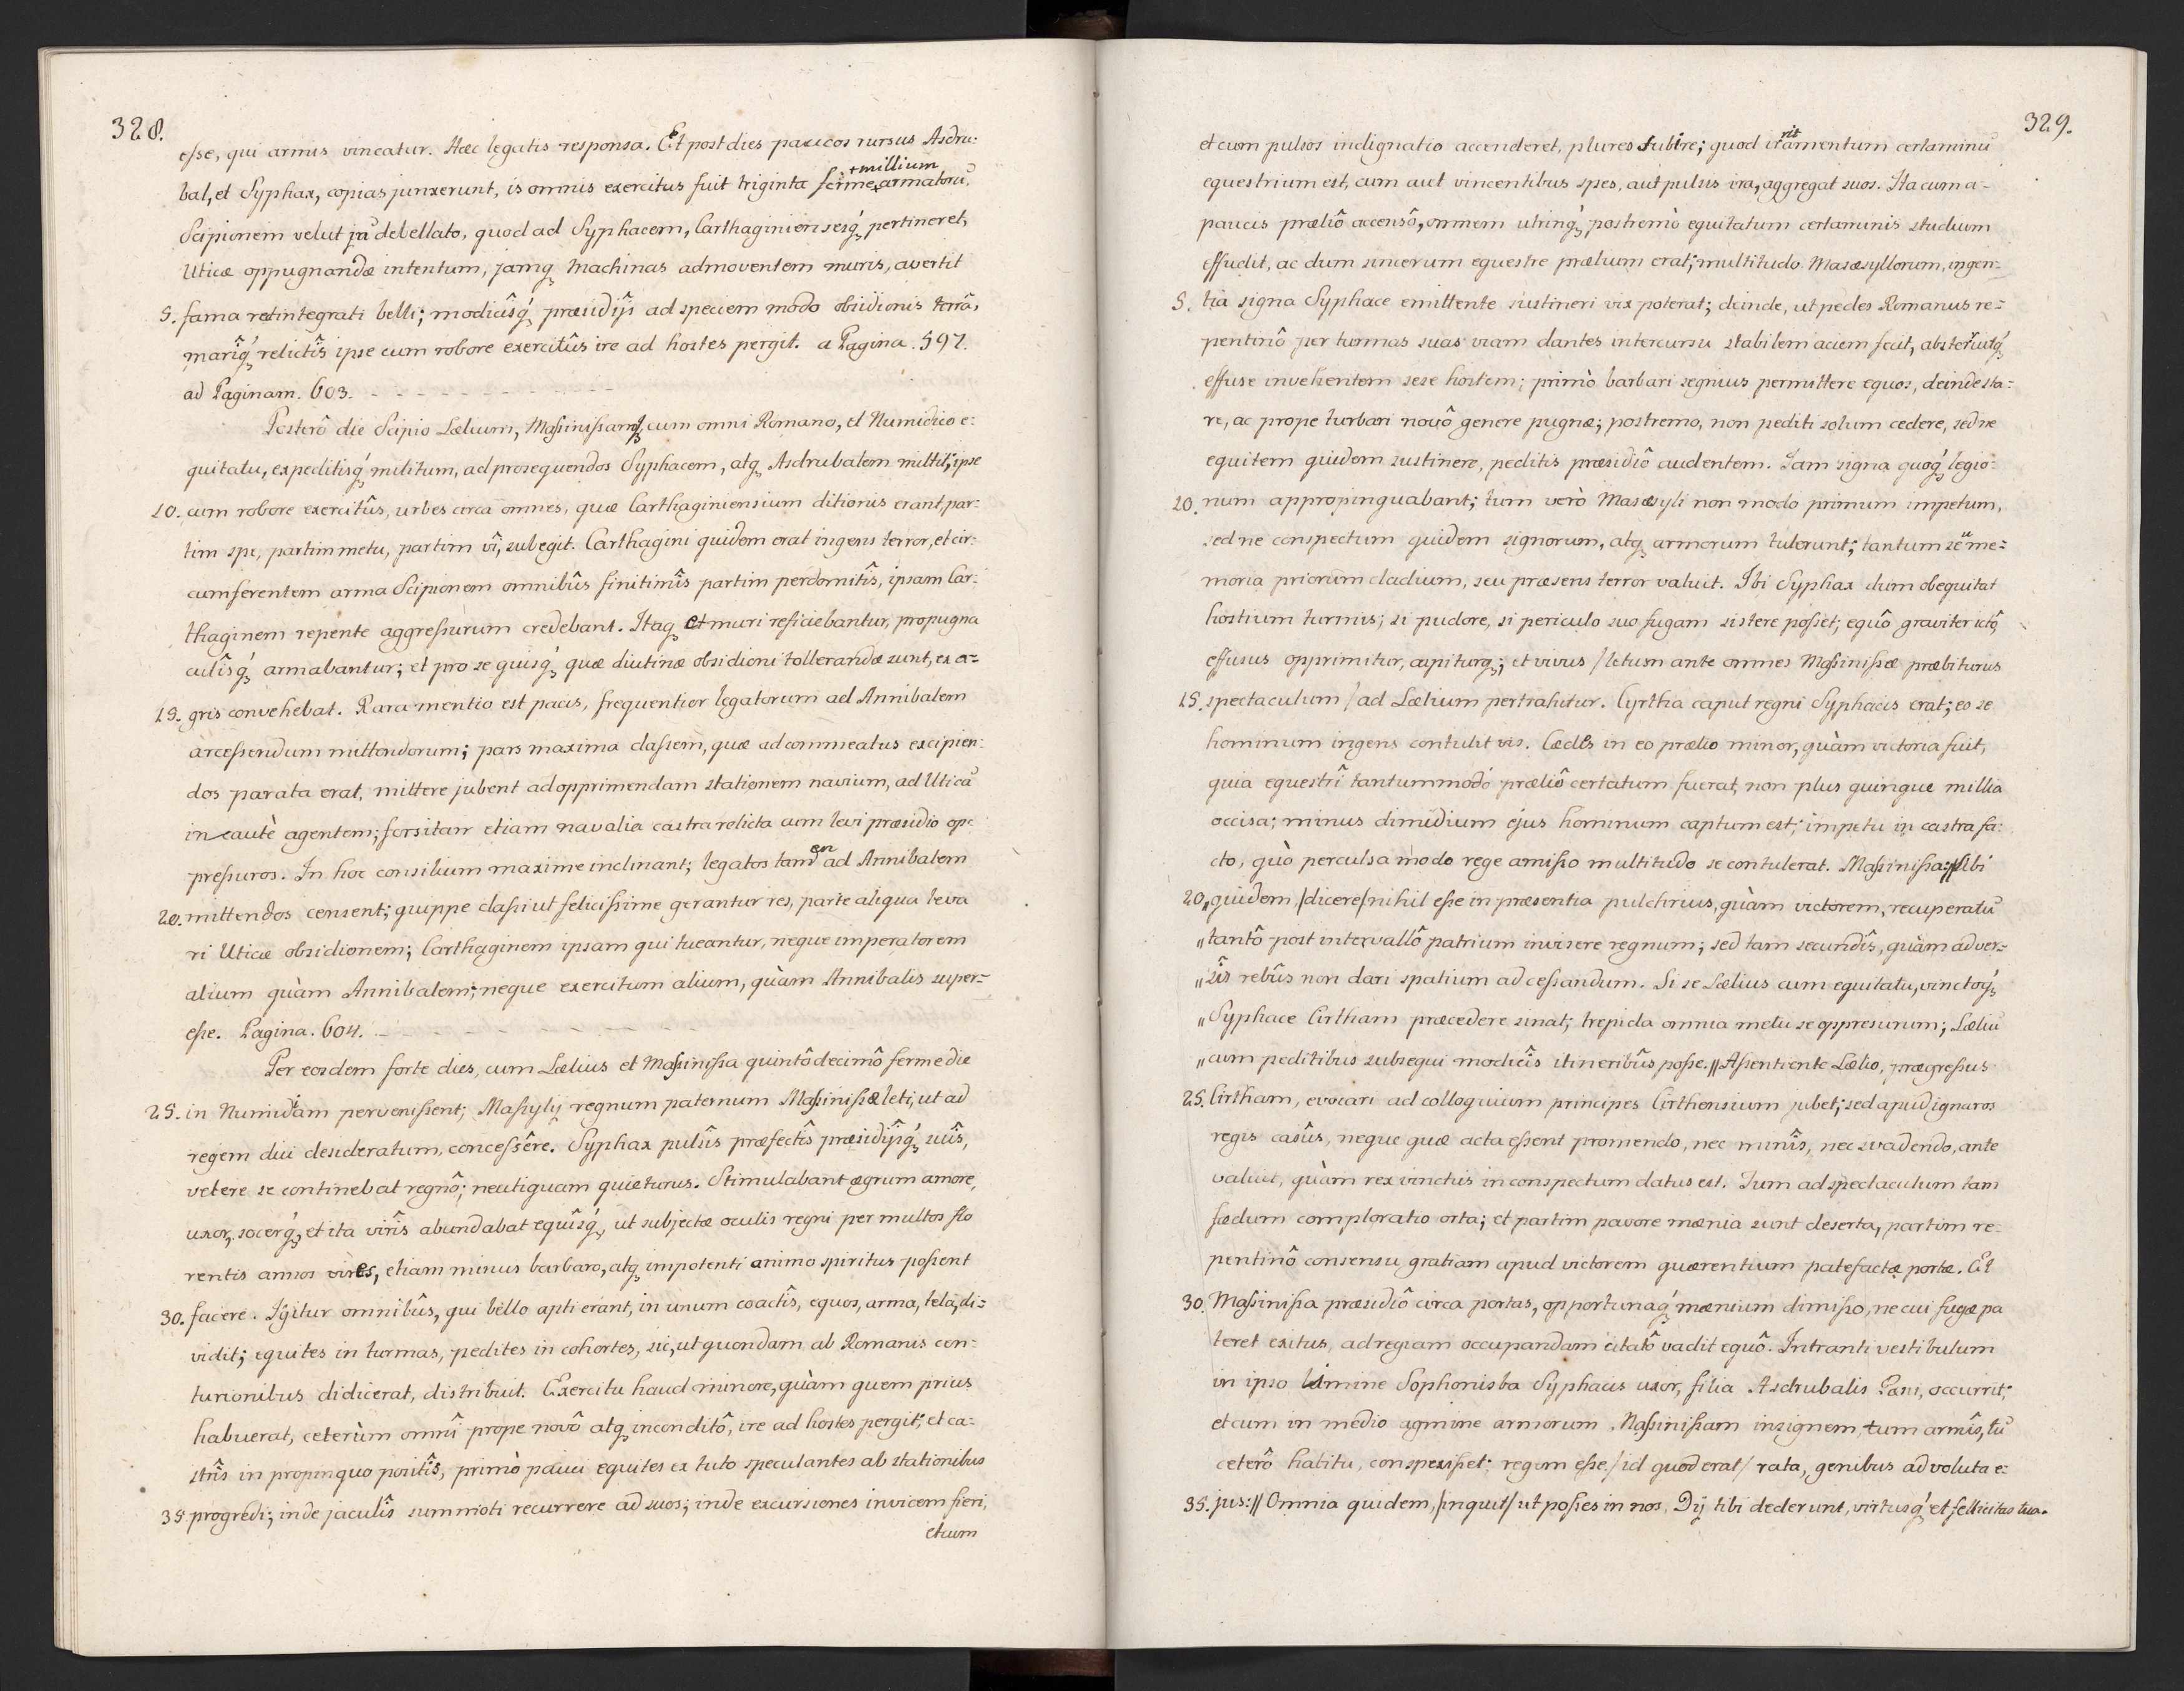 328.
esse, qui armis vincatur. Hæc legatis responsa. Et post dies paucos rursus Asdru-
bal, et Syphax, copias junxerunt, is omnis exercitus fuit triginta ferme + millium armatorũ.
Scipionem velut jã debellato, quod ad Syphacem, Carthaginiensesq́ʒ pertineret,
Uticæ oppugnandæ intentum, jamqʒ machinas admoventem muris, avertit
5. fama redintegrati belli; modicîsq́ʒ præsidijs ad speciem modo obsidionis terrâ,
mariq́ʒ relictîs ipse cum robore exercitûs ire ad hostes pergit. a Pagina. 597.
ad Paginam. 603. - - - - - - - - - -
Posterô die Scipio Lælium, Massinissamqʒ cum omni Romano, et Numidico e-
quitatu, expeditisq́ʒ militum, ad prosequendos Syphacem, atqʒ Asdrubalem mittit; ipse
10. cum robore exercitûs, urbes circa omnes, quæ Carthaginiensium ditionis erant, par-
tim spe, partim metu, partim vî, subegit. Carthagini quidem erat ingens terror, et cir-
cumferentem arma Scipionem omnibûs finitimîs partim perdomitîs, ipsam Car-
thaginem repente aggressurum credebant. Itaqʒ et muri reficiebantur, propugna
culîsq́ʒ armabantur; et pro se quisq́ʒ quæ diutinæ obsidioni tollerandæ sunt, ex a-
15. gris convehebat. Rara mentio est pacis, frequentior legatorum ad Annibalem
arcessendum mittendorum; pars maxima classem, quæ ad commeatus excipien-
dos parata erat, mittere jubent ad opprimendam stationem navium, ad Uticã
incautè agentem; forsitan etiam navalia castra relicta cum levi præsidio op-
pressuros. In hoc consilium maxime inclinant; legatos tamen ad Annibalem
20. mittendos censent; quippe classi ut felicissime gerantur res, parte aliqua leva
ri Uticæ obsidionem; Carthaginem ipsam qui tueantur, neque imperatorem
alium quàm Annibalem; neque exercitum alium, quàm Annibalis super-
esse. Pagina. 604. - - - - - - - -
Per eosdem forte dies, cum Lælius et Massinissa quintô decimô ferme die
25. in Numidiam pervenissent; Massyly regnum paternum Massinissæ leti, ut ad
regem diu desideratum, concessêre. Syphax pulsîs præfectîs præsidijsq́ʒ suîs,
vetere se continebat regnô; neutiquam quieturus. Stimulabant ægrum amore,
uxor, socerq́ʒ, et ita virîs abundabat equîsq́ʒ, ut subjectæ oculis regni per multos flo
rentis annos vires, etiam minus barbaro, atqʒ impotenti animo spiritus possent
30. facere. Igitur omnibûs, qui bello apti erant, in unum coactîs, equos, arma, tela, di-
vidit; equites in turmas, pedites in cohortes, sic, ut quondam ab Romanis cen-
turionibus didicerat, distribuit. Exercitu haud minore, quàm quem prius
habuerat, ceterùm omnî prope novô atqʒ inconditô, ire ad hostes pergit; et ca-
strîs in propinquo positîs, primò pauci equites ex tuto speculantes ab stationibus
35 progredi; inde jaculîs summoti recurrere ad suos; inde excursiones invicem fieri,
et cum
329.
et cum pulsos indignatio accenderet, plures subire; quod irritamentum certaminũ
equestrium est, cum aut vincentibus spes, aut pulsis ira, aggregat suos. Ita cum a-
paucis præliô accensô, omnem utrinq́ʒ postremò equitatum certaminis studium
effudit, ac dum sincerum equestre prælium erat; multitudo Masæsyllorum, ingen-
5. tia signa Syphace emittente sustineri vix poterat; deinde, ut pedes Romanus re-
pentinô per turmas suas viam dantes intercursu stabilem aciem fecit, absterruitq́ʒ
effuse invehentem sese hostem; primò barbari segnius permittere equos, deinde sta-
re, ac prope turbari novô genere pugnæ; postremo, non pediti solum cedere, sed ne
equitem quidem sustinere, peditis præsidiô audentem. Iam signa quoq́ʒ legio-
10. num appropinquabant; tum verò Masæsyli non modo primum impetum,
sed ne conspectum quidem signorum, atqʒ armorum tulerunt; tantum seu me-
moria priorum cladium, seu præsens terror valuit. Ibi Syphax dum obequitat
hostium turmis; si pudore, si periculo suo fugam sistere posset; equô graviter ictô,
effusus opprimitur, capiturqʒ; et vivus /letum ante omnes Massinissæ præbiturus
15. spectaculum / ad Lælium pertrahitur. Cyrtha caput regni Syphacis erat; eo se
hominum ingens contulit vis. Cædes in eo prælio minor, quàm victoria fuit,
quia equestrî tantummodò præliô certatum fuerat, non plus quinque millia
occisa; minus dimidium ejus hominum captum est; impetu in castra fa-
cto, quò perculsa modo rege amisso multitudo se contulerat. Massinissa: //Sibi
20. „quidem, /dicere/ nihil esse in præsentia pulchrius, quàm victorem, recuperatũ
„tantô post intervallô patrium invisere regnum; sed tam secundîs, quàm adver-
„sîs rebûs non dari spatium ad cessandum. Si se Lælius cum equitatu, vinctoq́ʒ
„Syphace Cirtham præcedere sinat; trepida omnia metu se oppresurum; Læliũ
„cum peditibus subsequi modicîs itineribûs posse.// Assentiente Lælio, prægressus
25. Cirtham, evocari ad colloquium principes Cirthensium jubet; sed apud ignaros
regis casûs, neque quæ acta essent promendo, nec minîs, nec svadendo, ante
valuit, quàm rex vinctus in conspectum datus est. Tum ad spectaculum tam
fœdum comploratio orta; et partim pavore mænia sunt deserta, partim re-
pentinô consensu gratiam apud victorem quærentium patefactæ portæ. Et
30. Massinissa præsidiô circa portas, opportunaq́ʒ mænium dimisso, ne cui fugæ pa
teret exitus, ad regiam occupandam citatô vadit equô. Intranti vestibulum
in ipso limine Sophonisba Syphacis uxor, filia Asdrubalis Pœni, occurrit;
et cum in medio agmine armorum Massinissam insignem, tum armîs, tũ
ceterô habitu, conspexisset; regem esse, /id quod erat/ rata, genibus advoluta e-
35. jus: // Omnia quidem, /inquit/ ut posses in nos, Dij tibi dederunt, virtusq́ʒ et fellicitas tua.